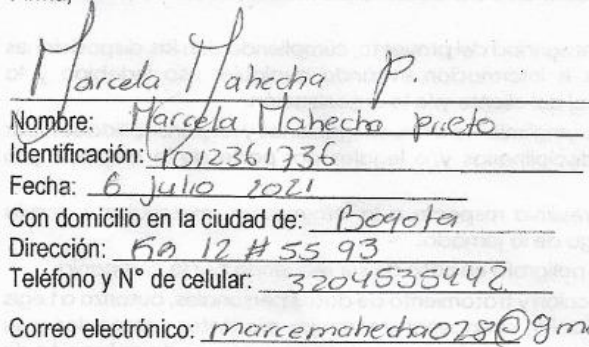 Marcela Mahecha P
Nombre: Marcela Mahecha Prieto
Identificación: 1012361736
Fecha: 6 julio 2021
Con domicilio en la ciudad de: Bogota
Dirección: KR 12 # 55 93
Teléfono y N° de celular: 3204535442
Correo electrónico: marcemahecha028@gm